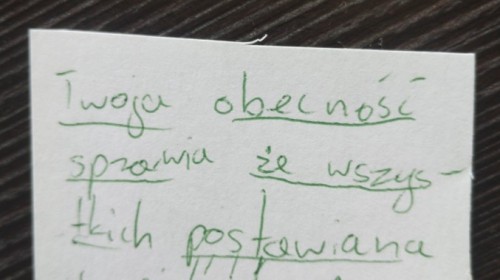 Twoja obecność
sprawia że wszys-
tkich postawiana